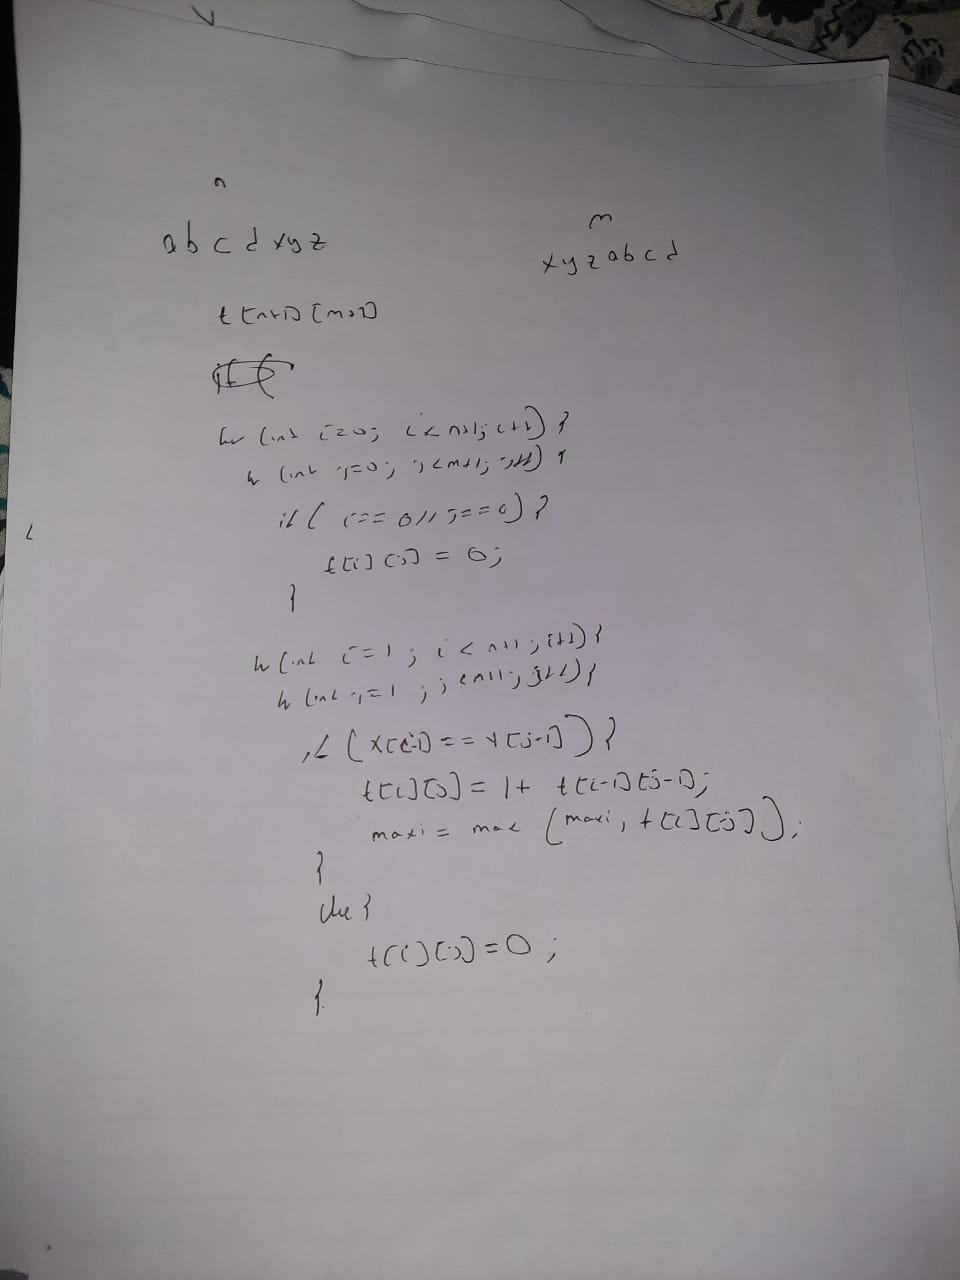 n
m
abcdxyz
xyzabcd
t[n+1][m+1]
for (int i=0; i<n+1; i++) {
for (int j=0; j<m+1; j++) {
if ( i == 0 || j == 0) {
t[i][j] = 0;
}
for (int i=1; i<n+1; i++) {
for (int j=1; j<n+1; j++) {
if (x[i-1] == y[j-1]) {
t[i][j] = 1+ t[i-1][j-1];
maxi = max (maxi, t[i][j]);
}
else {
t[i][j] = 0;
}